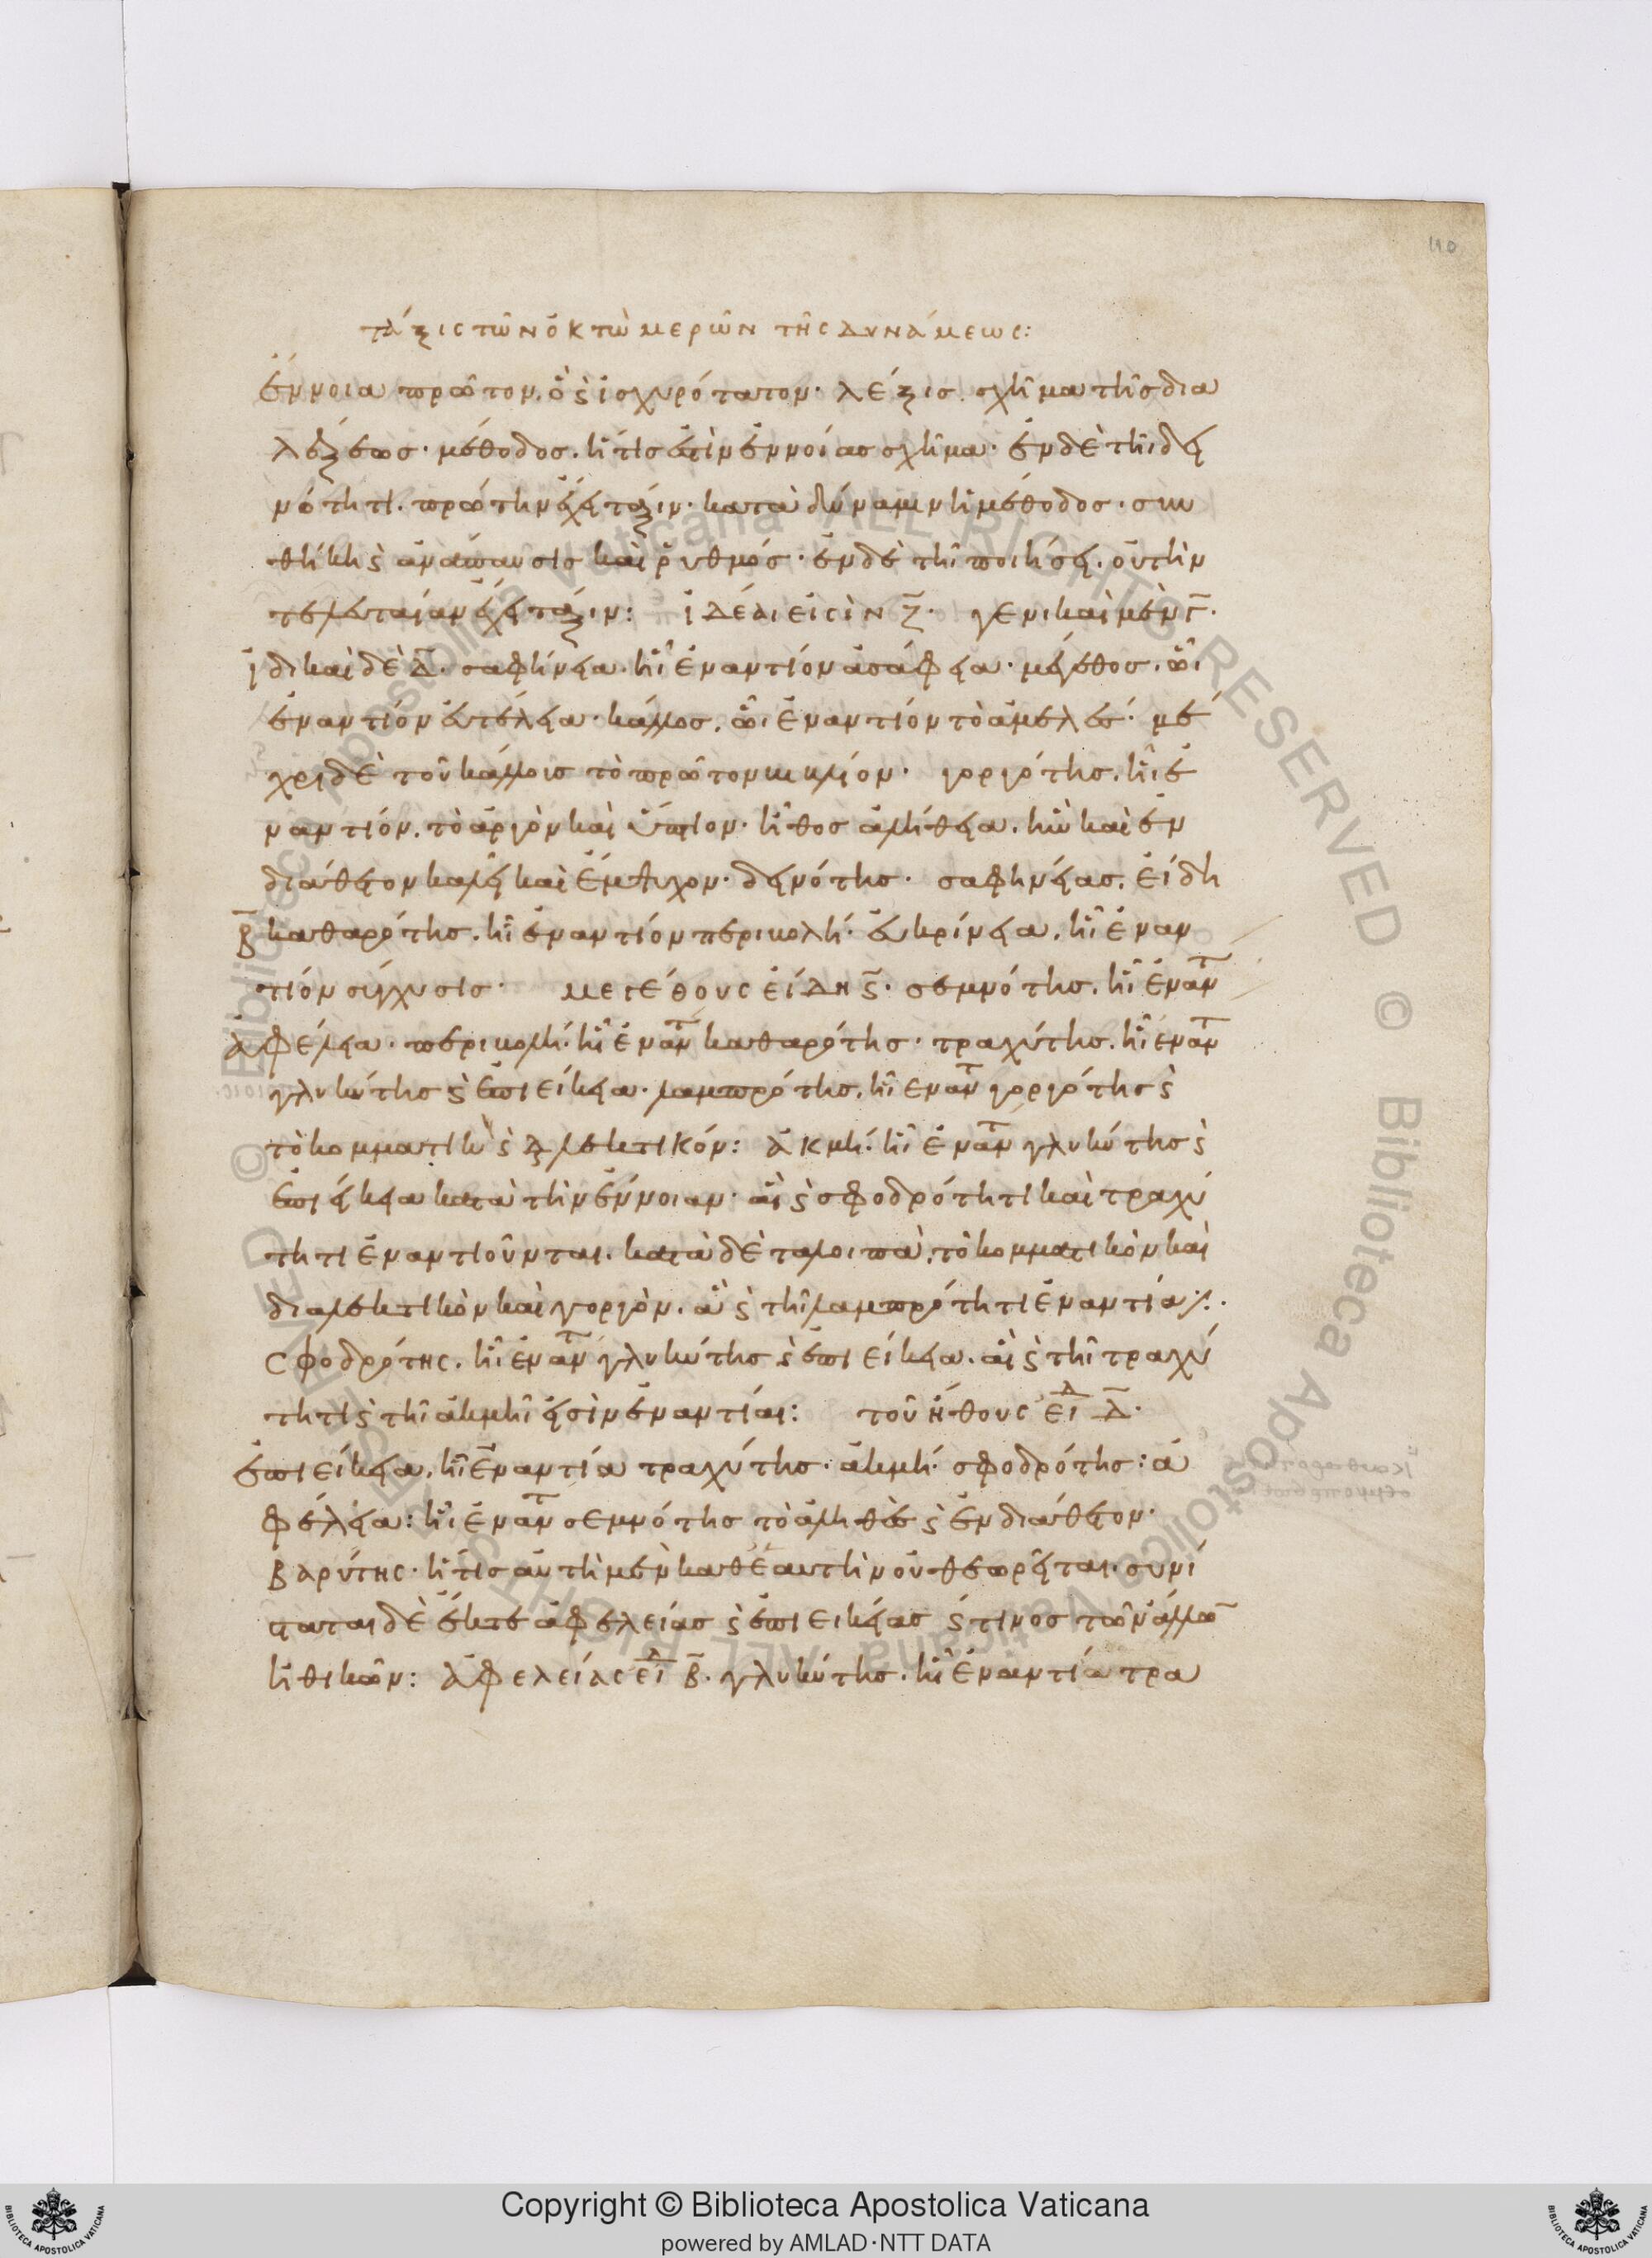 110
τάξις τῶν ὀκτὼ μερῶν τῆς δυνάμεως:
ἔννοια πρῶτον, ὃ ϛ ἰσχυρότατον· λέξισ. σχῆμα τῆσ δια
λέξεωσ· μέθοδοσ. ἥτίσ ἐστὶν ἐννοίασ σχῆμα· ἐν δὲ τῆι δει
νότητι. πρώτην ἔχει τάξιν· κατὰ δύναμιν ἡ μέθοδοσ· συν
θήκη ϛ ἀνάπαυσισ καὶ ῥυθμόσ· ἐν δὲ τῆ ποιήσει. οὐ τὴν
τελευταίαν ἔχει τάξιν: ἰδέαι εἰσὶν ζ̅· γενικαὶ μὲν γ̅·
ἰδικαὶ δὲ δ̅· σαφήνεια. ἧι ἐναντίον ἀσάφεια· μέγεθοσ. ὧι
ἐναντίον εὐτέλεια· κάλλοσ. ὧι ἐναντίον τὸ ἀμελέσ· μέ
χρι δὲ τοῦ κάλλουσ τὸ πρῶτον βιβλίον· γοργότησ. ἧι ἐ
ναντίον. τὸ ἀργὸν καὶ ὕπτιον· ἦθοσ ἀλήθεια. ἣν καὶ ἐν
διάθετον καλεῖ καὶ ἔμψυχον· δεινότησ· σαφηνείασ. εἴδη
β̅ καθαρότησ. ἧι ἐναντίον περιβολή· εὐκρίνεια. ἧι ἐναν
τίον σύγχυσισ· μεγέθους εἴδη ϛ̅· σεμνότησ. ἧι ἐναντ
ἀφέλεια· περιβολή· ἧι ἐναντ καθαρότησ· τραχύτησ. ἧι ἐναντ
γλυκύτησ ϛ ἐπιείκεια· λαμπρότησ. ἧι εναντ γοργότησ ϛ
τὸ κομματικ ϛ διαλεκτικόν: ἀκμή· ἧι ἐναντ γλυκύτησ ϛ
ἐπιείκεια κατὰ τὴν ἔννοιαν· αἳ ϛ σφοδρότητι καὶ τραχύ
τητι ἐναντιοῦνται. κατὰ δὲ τα λοιπὰ, τὸ κομματικὸν καὶ
διαλεκτικὸν καὶ γοργὸν. ἃ ϛ τῆ λαμπρότητι ἐναντία:
σφοδρότης. ἧι ἐναντ γλυκύτησ ϛ ἐπιείκεια. αἳ ϛ τῆ τραχύ
τητι ϛ τῆ ἀκμῆ εἰσὶν ἐναντίαι: τοῦ ἤθους εἴδ δ̅·
ἐπιείκεια, ἧι ἐναντία τραχύτησ· ἀκμή· σφοδρότησ: ἀ
φέλεια: ἧι ἐναντ σεμνότησ τὸ ἀληθὲσ ϛ ἐνδιάθετον·
βαρύτης· ἥτισ αὐτὴ μὲν καθ᾽ ἑαυτὴν οὐ θεωρεῖται. συνί
σταται δὲ ἔκ τε ἀφελείασ ϛ ἐπιεικείασ ϛ τινοσ τῶν ἄλλω
ἠθικῶν: ἀφελείας εἴδ β̅. γλυκύτησ. ἧι ἐναντία τρα
Copyright © Biblioteca Apostolica Vaticana
powered by AMLAD·NTT DATA